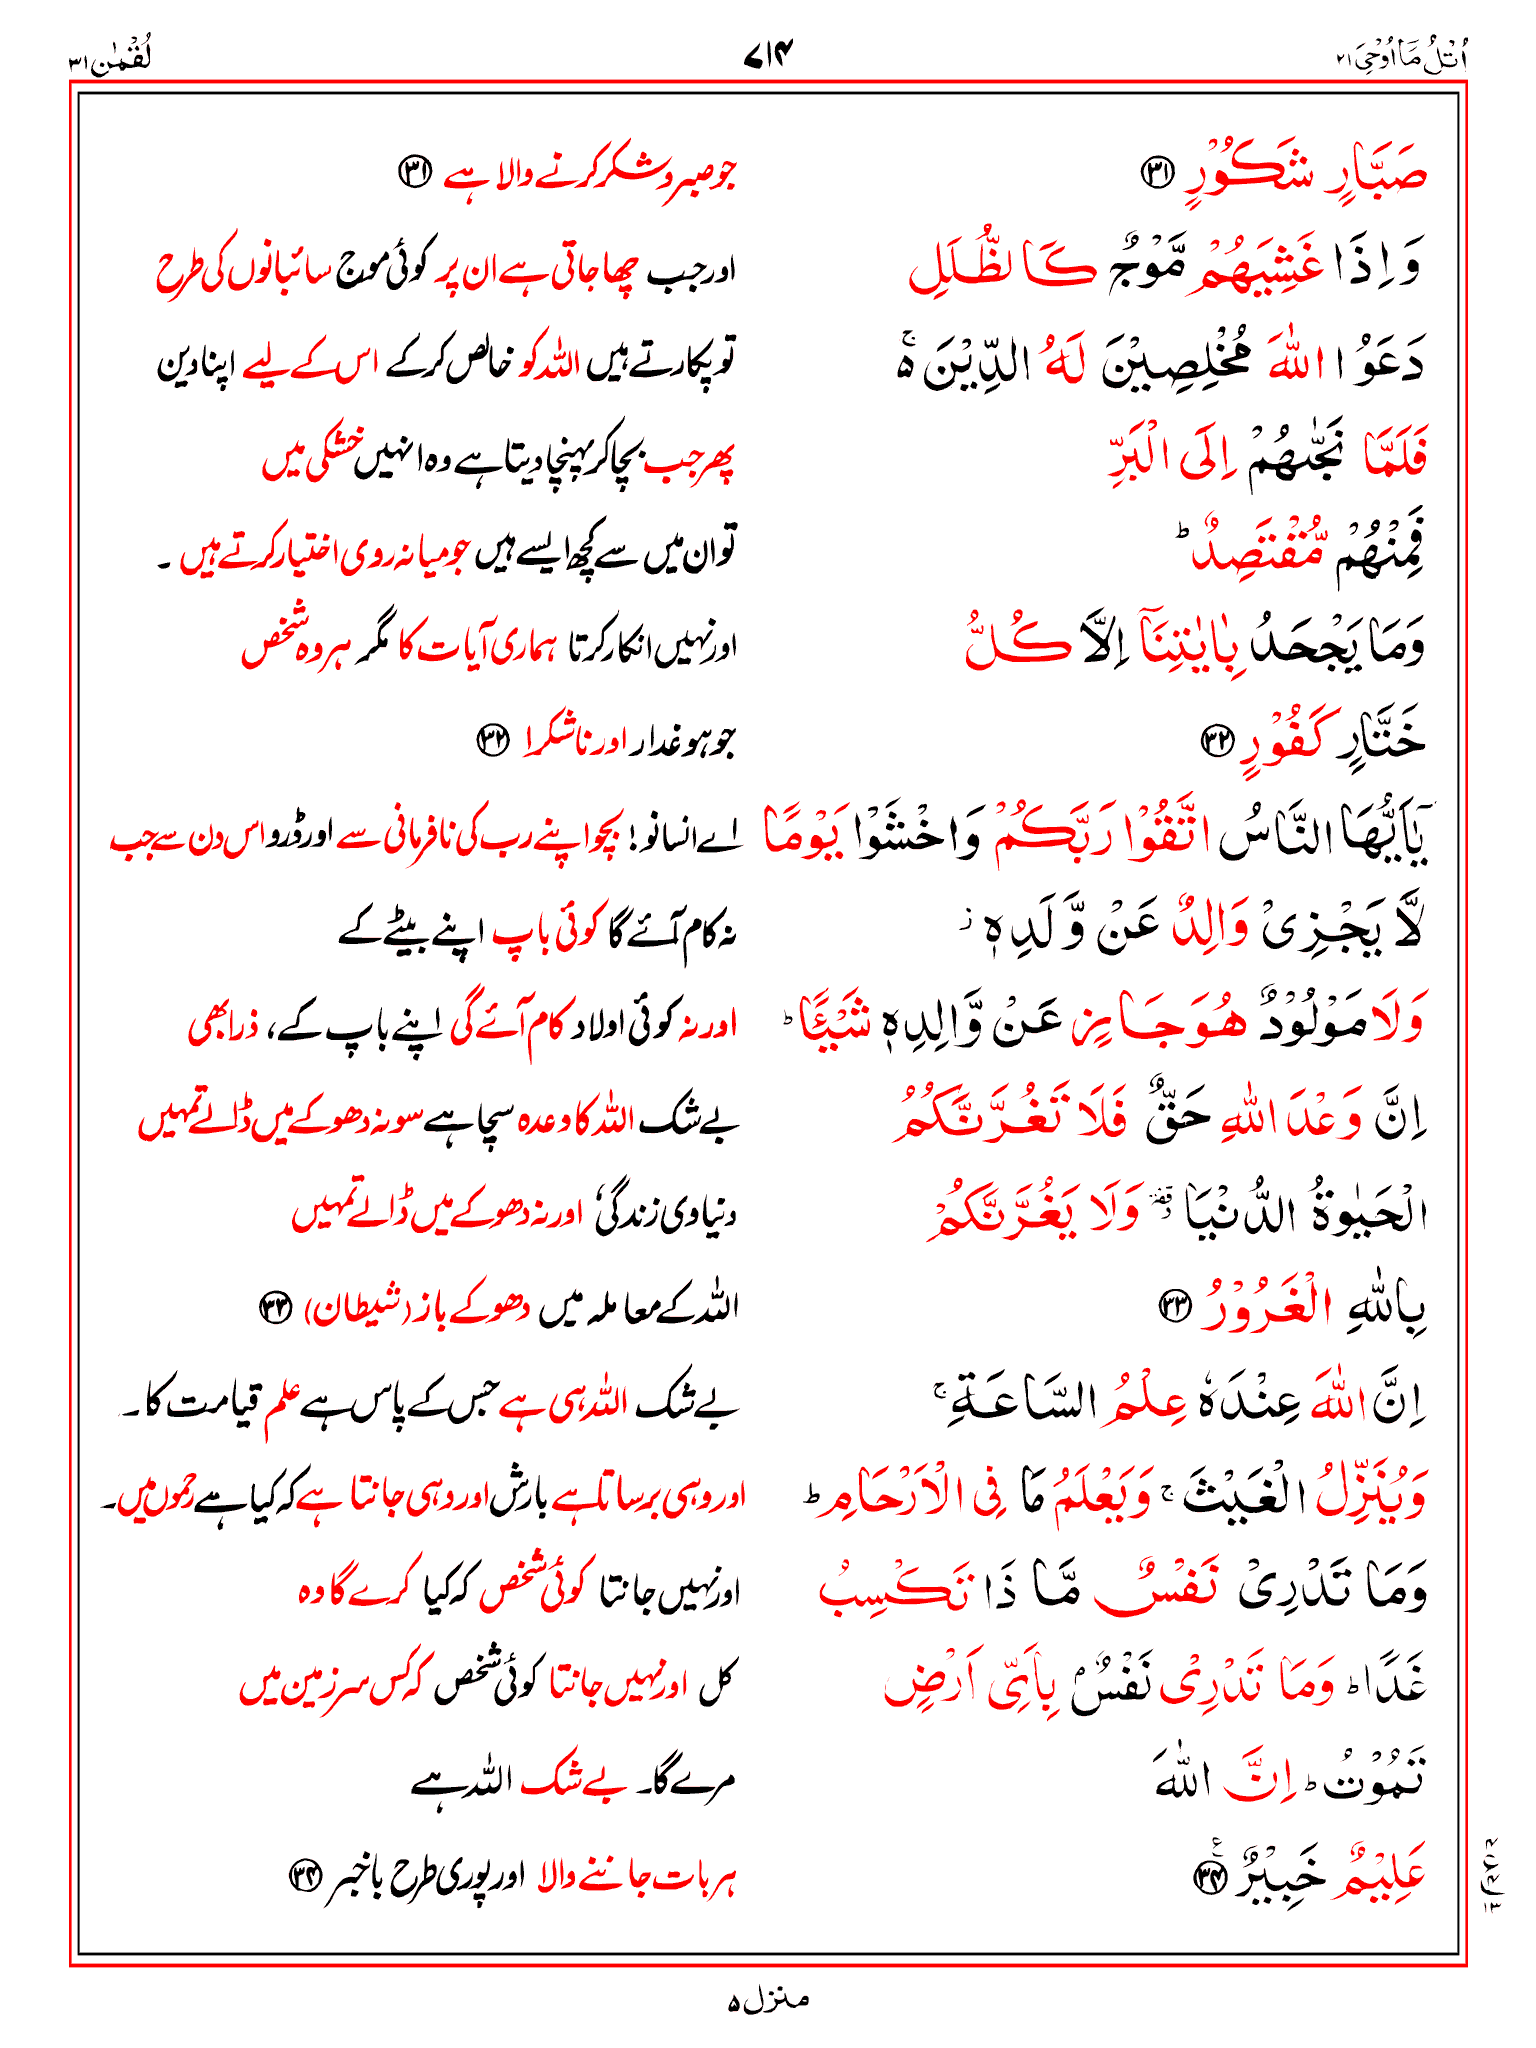 اُتْلُ مَآ اُوْحِیَ ۲۱ ۷۱۴ لُقْمٰن ۳۱
صَبَّارٍ شَكُوْرٍ ۳۱ جو صبر و شکر کرنے والا ہے ۳۱
وَ اِذَا غَشِیَهُمْ مَّوْجٌ كَالظُّلَلِ اور جب چھا جاتی ہے ان پر کوئی موج سائبانوں کی طرح
دَعَوُا اللّٰهَ مُخْلِصِیْنَ لَهُ الدِّیْنَ ۵ۚ تو پکارتے ہیں اللہ کو خالص کرکے اس کے لیے اپنا دین
فَلَمَّا نَجّٰىهُمْ اِلَى الْبَرِّ پھر جب بچا کر پہنچا دیتا ہے وہ انہیں خشکی میں
فَمِنْهُمْ مُّقْتَصِدٌ ؕ تو ان میں سے کچھ ایسے ہیں جو میانہ روی اختیار کرتے ہیں ۔
وَمَا یَجْحَدُ بِاٰیٰتِنَاۤ اِلَّا كُلُّ اور نہیں انکار کرتا ہماری آیات کا مگر ہر وہ شخص
خَتَّارٍ كَفُوْرٍ ۳۲ جو ہو غدار اور ناشکرا ۳۲
یٰۤاَیُّهَا النَّاسُ اتَّقُوْا رَبَّكُمْ وَاخْشَوْا یَوْمًا اے انسانو! بچو اپنے رب کی نافرمانی سے اور ڈرو اس دن سے جب
لَّا یَجْزِیْ وَالِدٌ عَنْ وَّلَدِهٖ ز نہ کام آئے گا کوئی باپ اپنے بیٹے کے
وَلَا مَوْلُوْدٌ هُوَ جَازٍ عَنْ وَّالِدِهٖ شَیْـًٔا ؕ اور نہ کوئی اولاد کام آئے گی اپنے باپ کے، ذرا بھی
اِنَّ وَعْدَ اللّٰهِ حَقٌّ فَلَا تَغُرَّنَّكُمُ بے شک اللہ کا وعدہ سچا ہے سو نہ دھوکے میں ڈالے تمہیں
الْحَیٰوةُ الدُّنْیَا وَلَا یَغُرَّنَّكُمْ دنیاوی زندگی اور نہ دھوکے میں ڈالے تمہیں
بِاللّٰهِ الْغَرُوْرُ ۳۳ اللہ کے معاملہ میں دھوکے باز (شیطان) ۳۳
اِنَّ اللّٰهَ عِنْدَهٗ عِلْمُ السَّاعَةِ ۚ بے شک اللہ ہی ہے جس کے پاس ہے علم قیامت کا۔
وَیُنَزِّلُ الْغَیْثَ ۚ وَیَعْلَمُ مَا فِی الْاَرْحَامِ ؕ اور وہی برساتا ہے بارش اور وہی جانتا ہے کہ کیا ہے رحموں میں۔
وَمَا تَدْرِیْ نَفْسٌ مَّاذَا تَكْسِبُ اور نہیں جانتا کوئی شخص کہ کیا کرے گا وہ
غَدًا ؕ وَمَا تَدْرِیْ نَفْسٌۢ بِاَیِّ اَرْضٍ کل اور نہیں جانتا کوئی شخص کہ کس سرزمین میں
تَمُوْتُ ؕ اِنَّ اللّٰهَ مرے گا۔ بے شک اللہ ہے
عَلِیْمٌ خَبِیْرٌ ۳۴ ہر بات جاننے والا اور پوری طرح باخبر ۳۴
منزل ۵